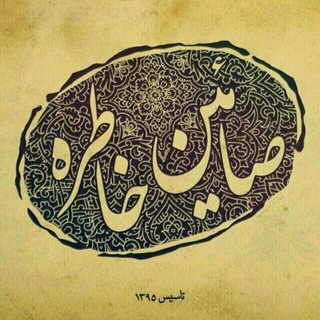 صائین خاطره
تاسیس ۱۳۹۵